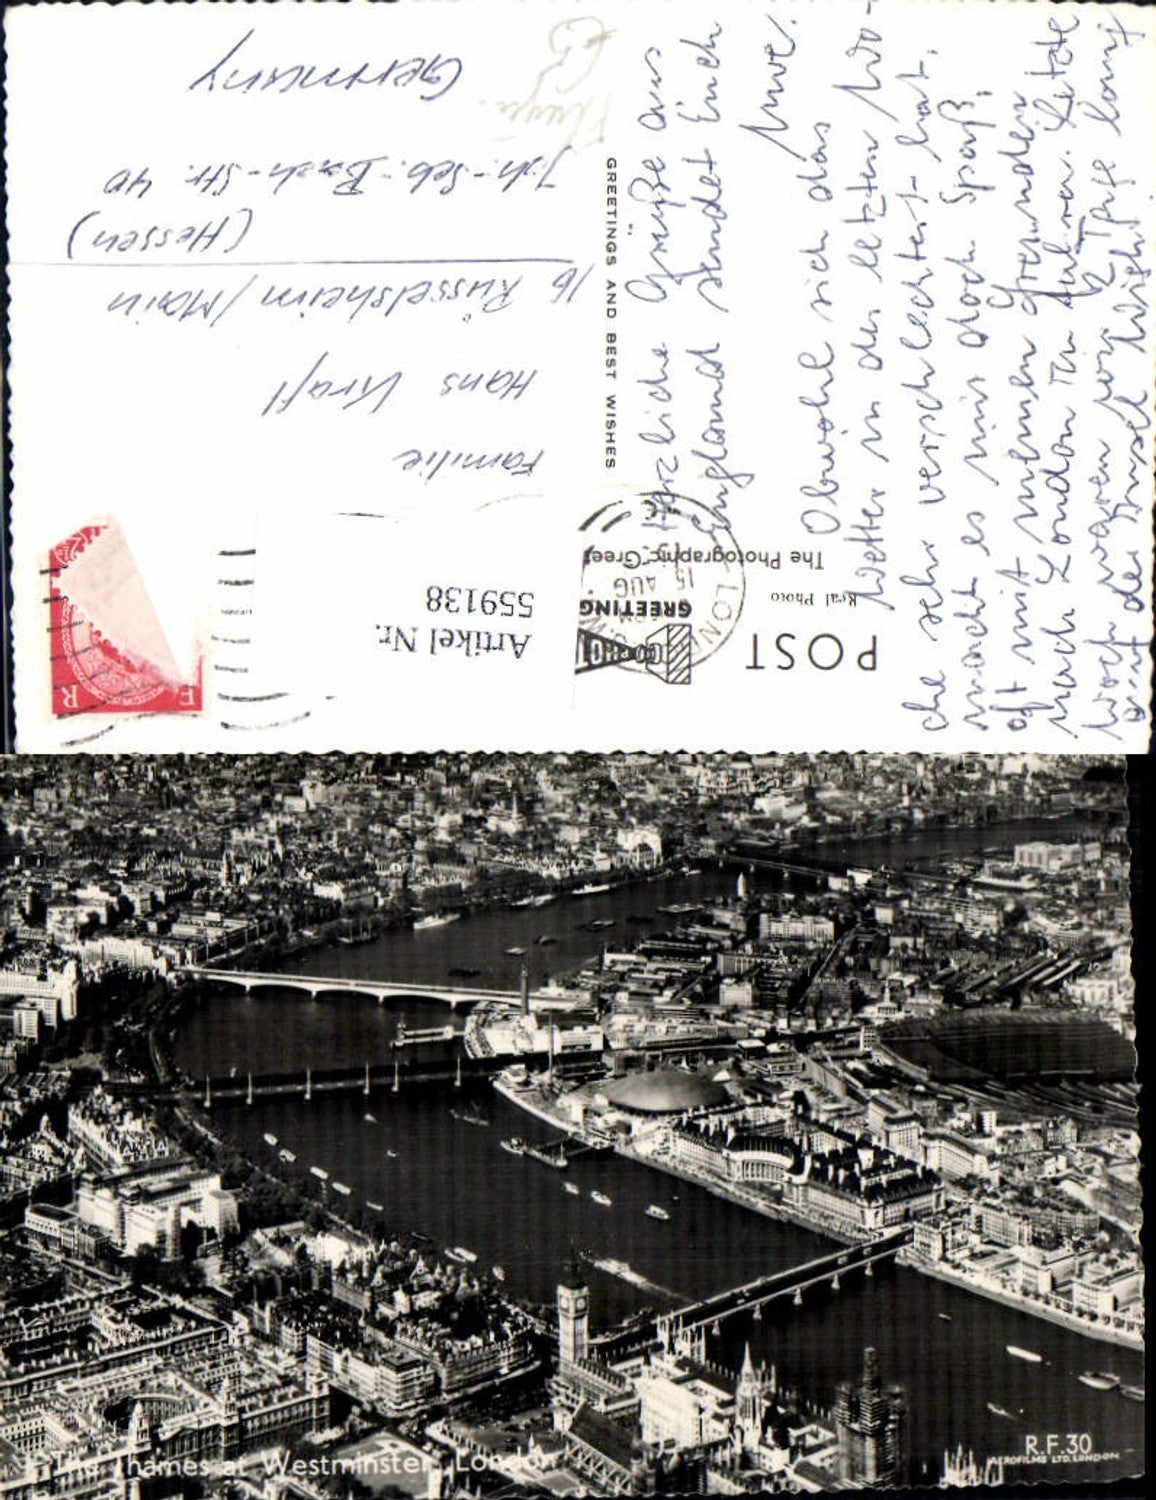 POST
Real Photo
The Photographic Greet
GREETING
LON
15 AUG
Artikel Nr.
559138
E R
GREETINGS AND BEST WISHES
Familie
Hans Kraft
16 Rüsselsheim/Main
(Hessen)
Joh.-Seb.-Bach-Str. 40
Germany
Herzliche Grüße aus
England sendet Euch
Uwe.
Obwohl sich das
Wetter in der letzten Wo-
che sehr verschlechtert hat,
macht es mir doch Spaß,
oft mit meinen Freunden
nach London zu fahren. Letzte
Woch waren wir 2 Tage lang
auf der Insel Wight.
The Thames at Westminster, London
R.F.30
AEROFILMS LTD. LONDON